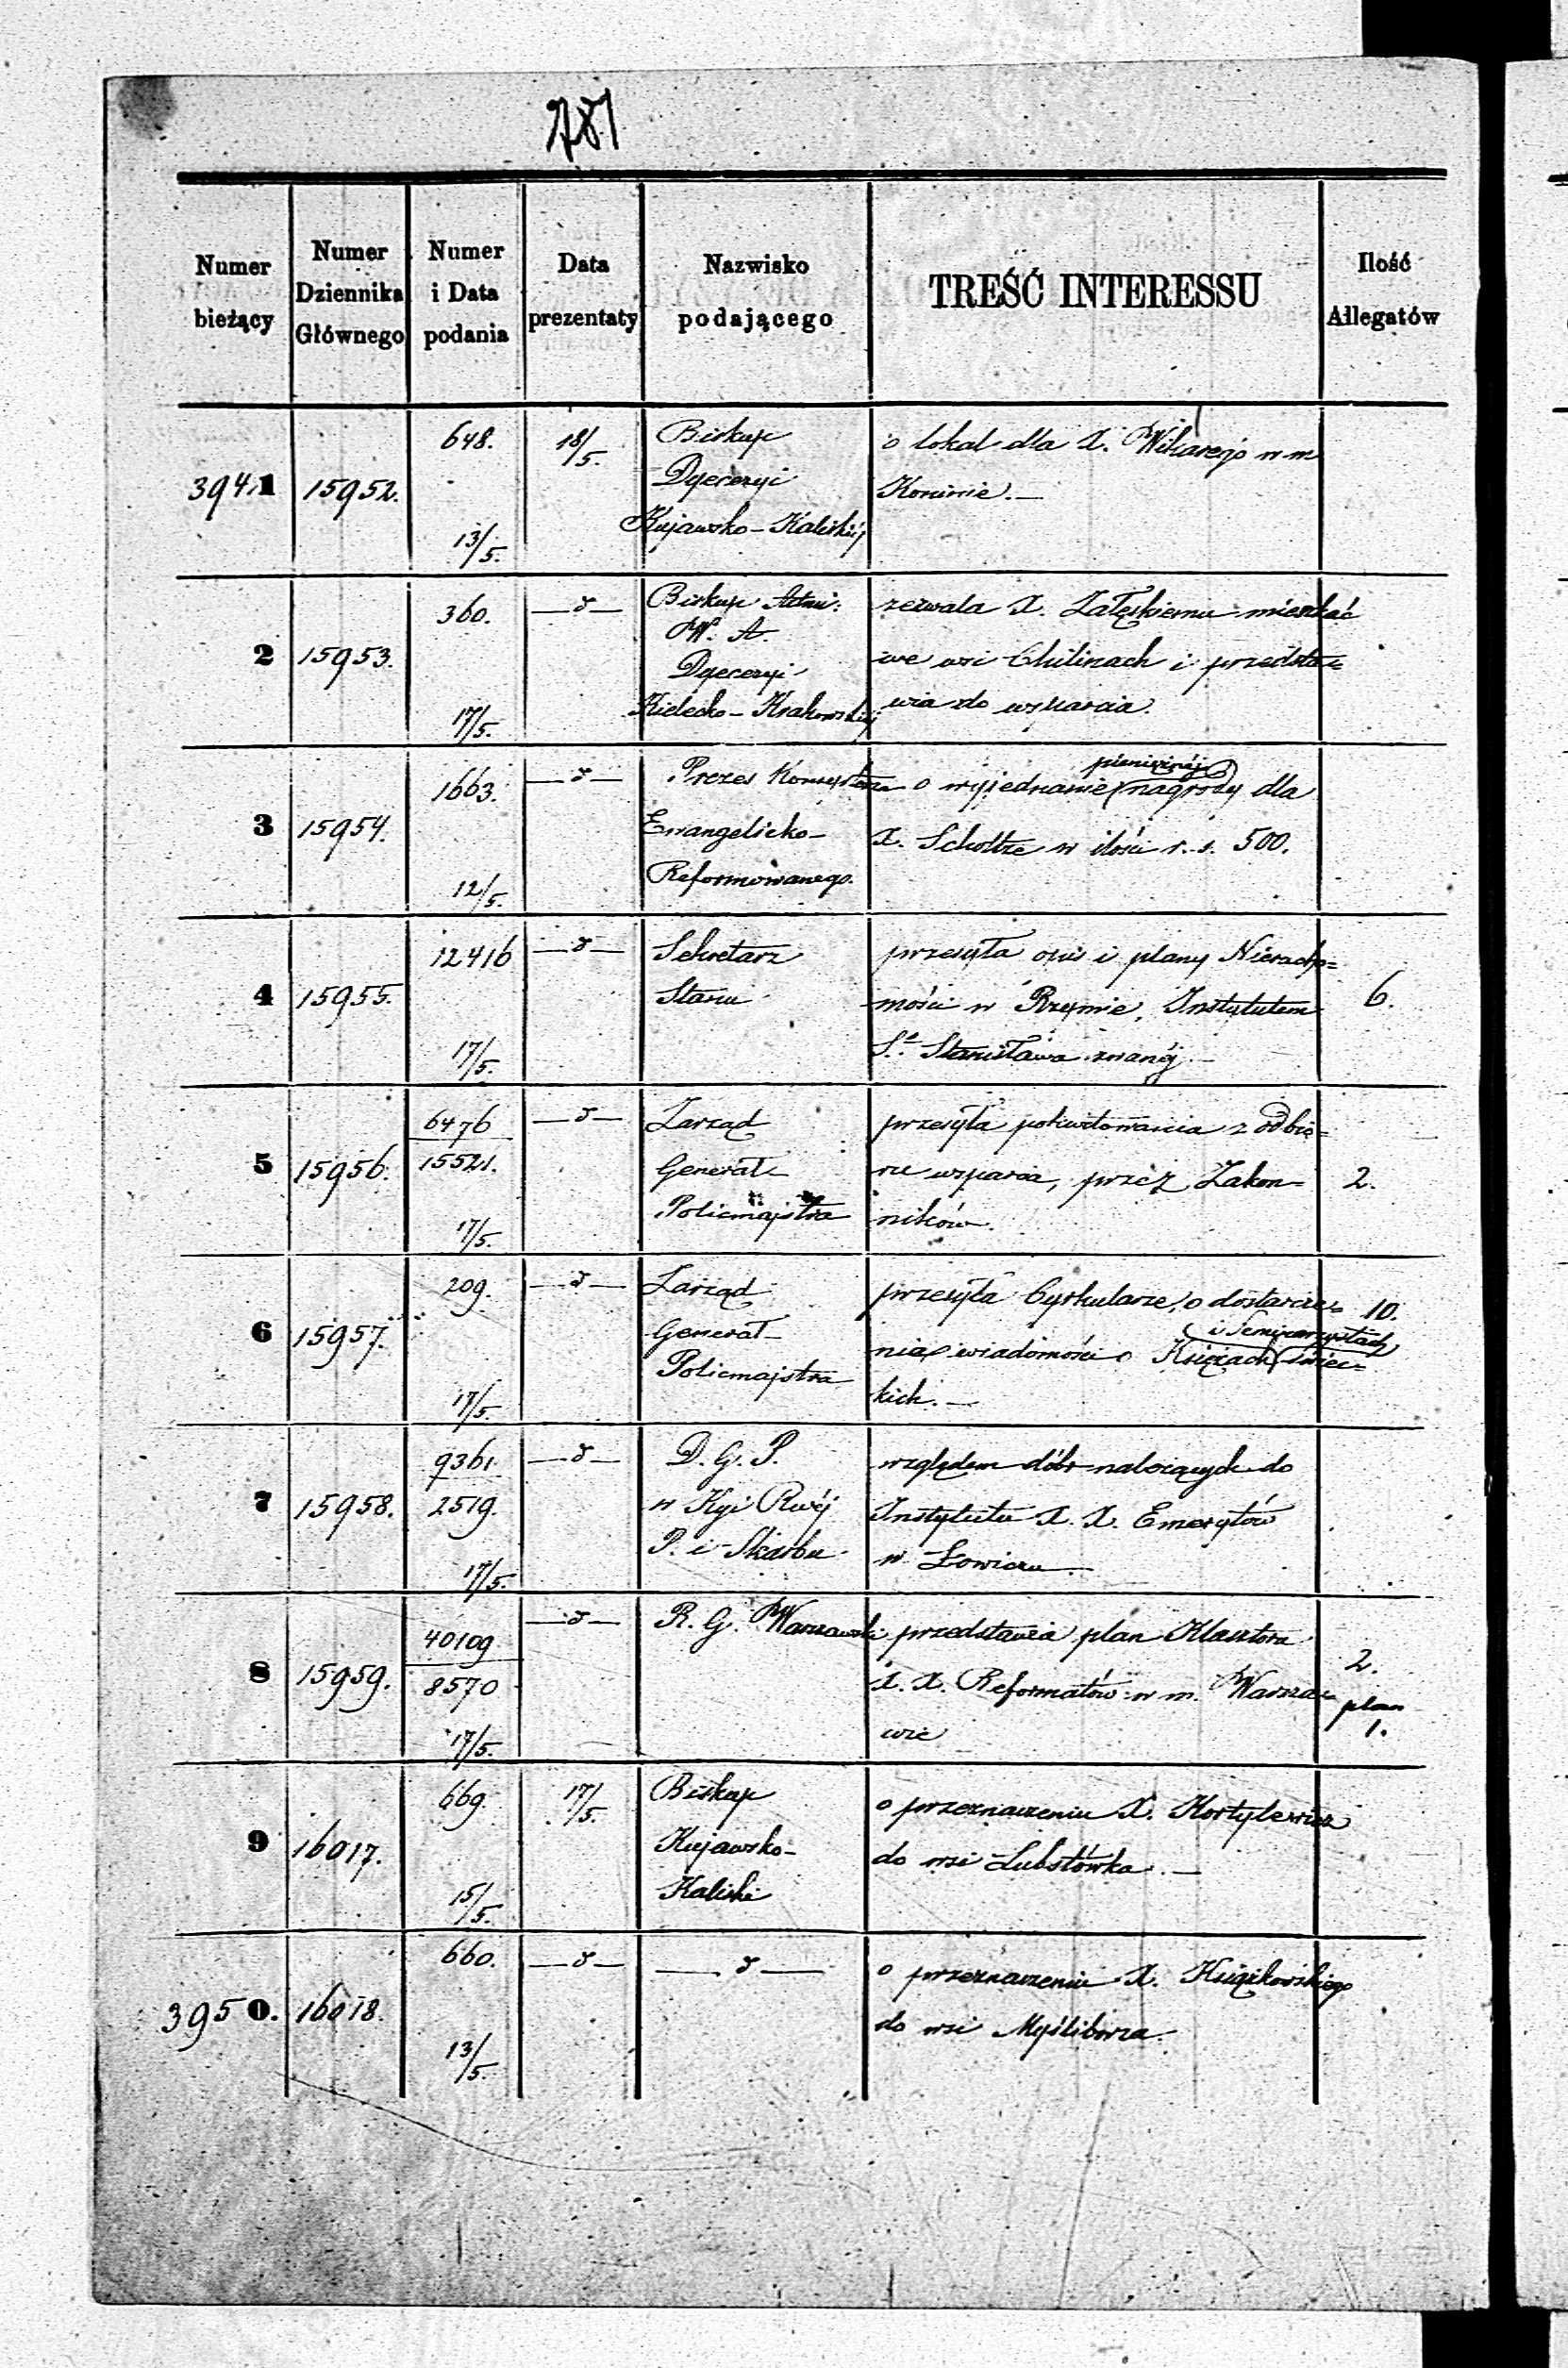 781
Numer bieżący | Numer Dziennika Głównego | Numer i Data podania | Data prezentaty | Nazwisko podającego | TREŚĆ INTERESSU | Ilość Allegatów
3941 | 15952. | 648. 13/5. | 18/5. | Biskup | o lokal dla X. Wikarego w m
Dyecezyi | Koninie. —
Kujawsko-Kaliskiéj
2 | 15953. | 360. 17/5. | —d— | Biskup Admi: | zezwala X. Załęskiemu mieszkać
W. A. | we wsi Chlinach i przedsta=
Dyecezyi | wia do wsparcia.
Kielecko-Krakowskiéj
3 | 15954. | 1663. 12/5. | —d— | Prezes Konsystorza | o wyjednanie pieniężnéj nagrody dla
Ewangelicko- | X. Scholtze w ilości r. s. 500.
Reformowanego.
4 | 15955. | 12416 17/5. | —d— | Sekretarz | przesyła opis i plany Nierucho= | 6.
Stanu | mości w Rzymie, Instytutem
S.o Stanisława znanéj. —
5 | 15956. | 6476 15521. 17/5. | —d— | Zarząd | przesyła pokwitowania z odbio= | 2.
Generał- | ru wsparcia, przez Zakon=
Policmajstra | ników.
6 | 15957. | 209. 17/5. | —d— | Zarząd | przesyła Cyrkularze, o dostarcze= | 10.
Generał- | nia wiadomości o Księżach i Seminarzystach świec=
Policmajstra | kich. —
7 | 15958. | 9361 2519. 17/5. | —d— | D. G. P. | względem dóbr należących do
w Kyi Rwéj | Instytutu X. X. Emerytów
P. i Skarbu | w Łowiczu. —
8 | 15959. | 40109 8570 17/5. | —d— | R. G. Warszawski | przedstawia plan Klasztoru | 2.
X. X. Reformatów w m. Warsza= | plan
wie | 1.
9 | 16017. | 669. 15/5. | 17/5. | Biskup | o przeznaczeniu X. Kortylewicza
Kujawsko- | do wsi Lubstówka. —
Kaliski
3950. | 16018. | 660. 13/5. | —d— | —d— | o przeznaczeniu X. Książkowskiego
do wsi Myśliborza.